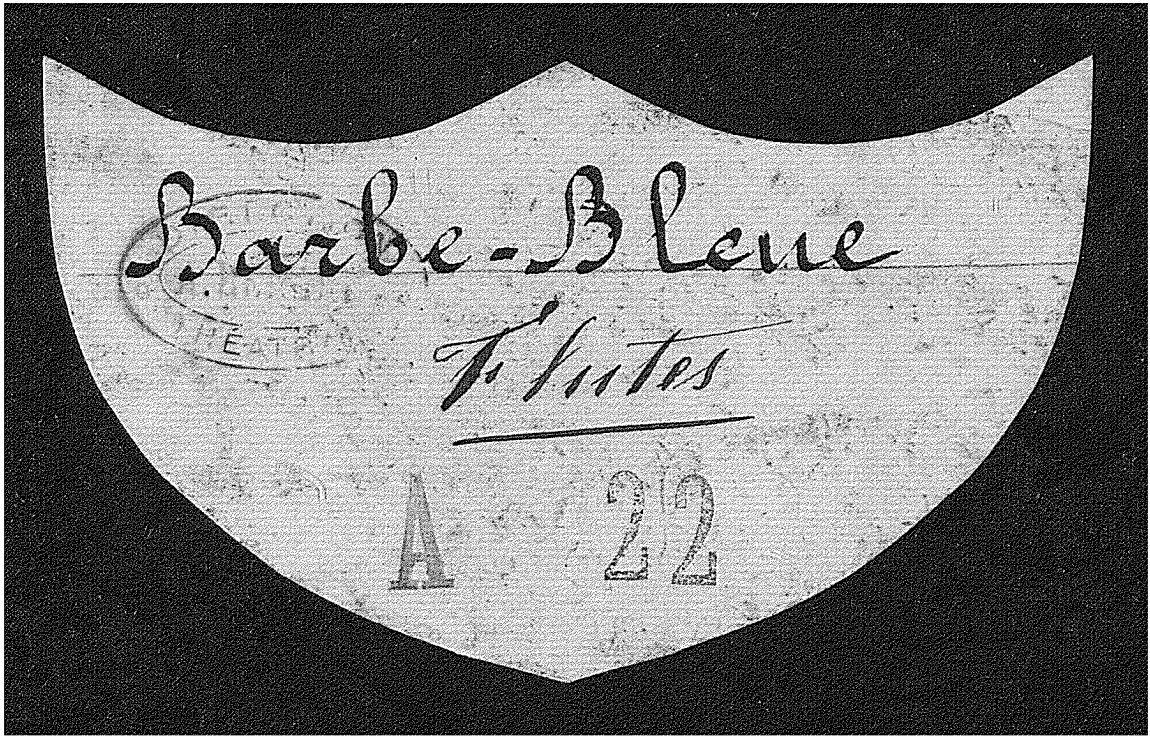 Barbe-Bleue
THEATR
Flutes
A 22